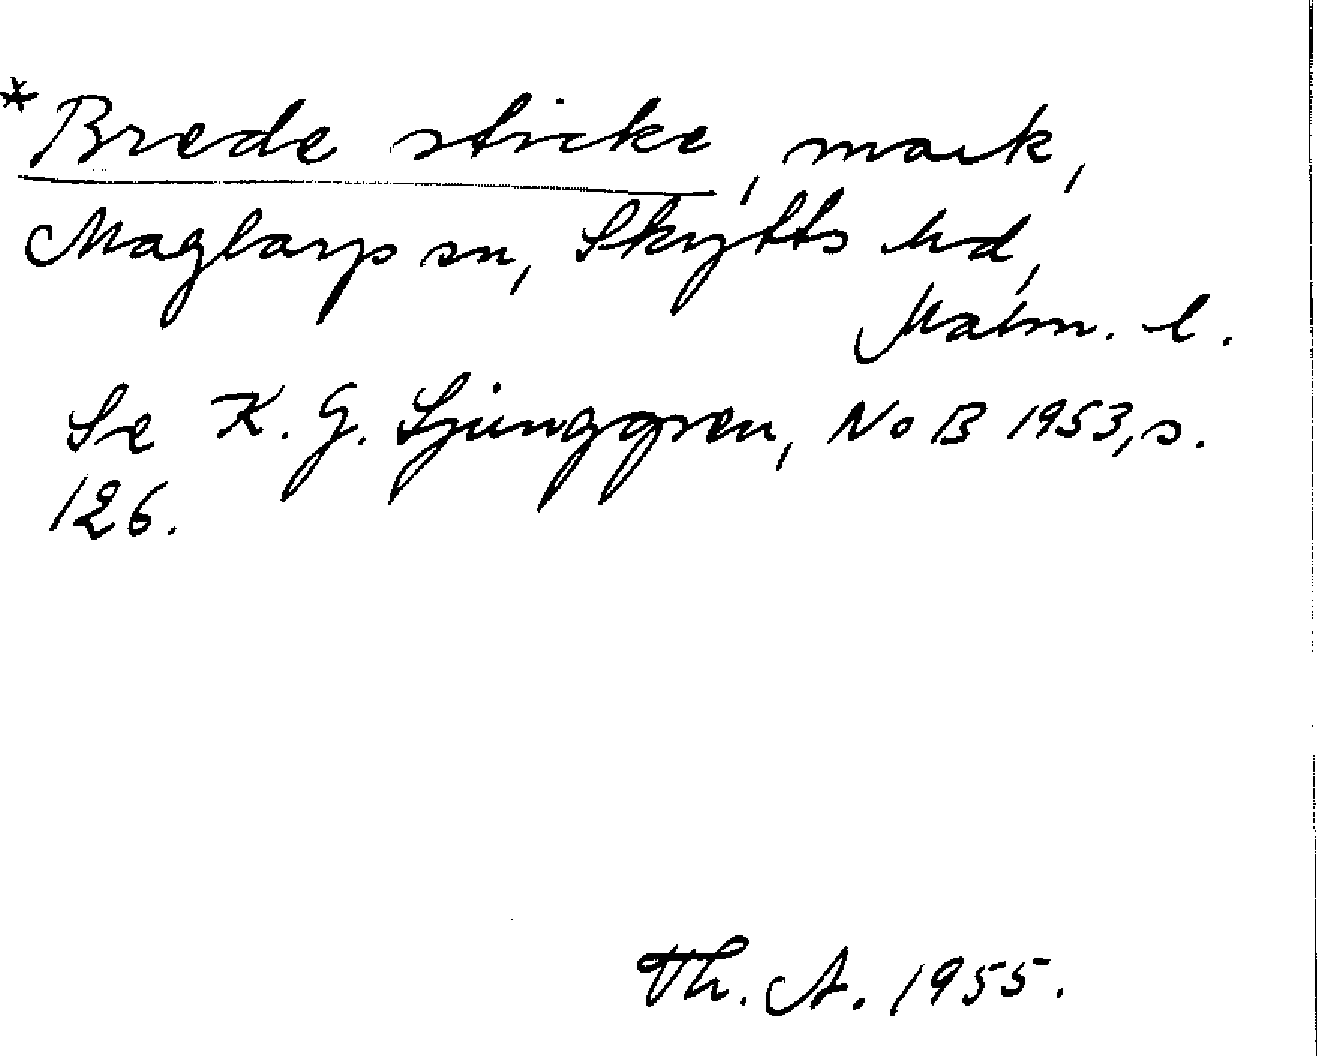 *Brede sticke, mark,
Maglarp sn, Skytts hd,
Malm. l.
Se K. G. Ljunggren, NoB 1953, s.
126.
Th. A. 1955.